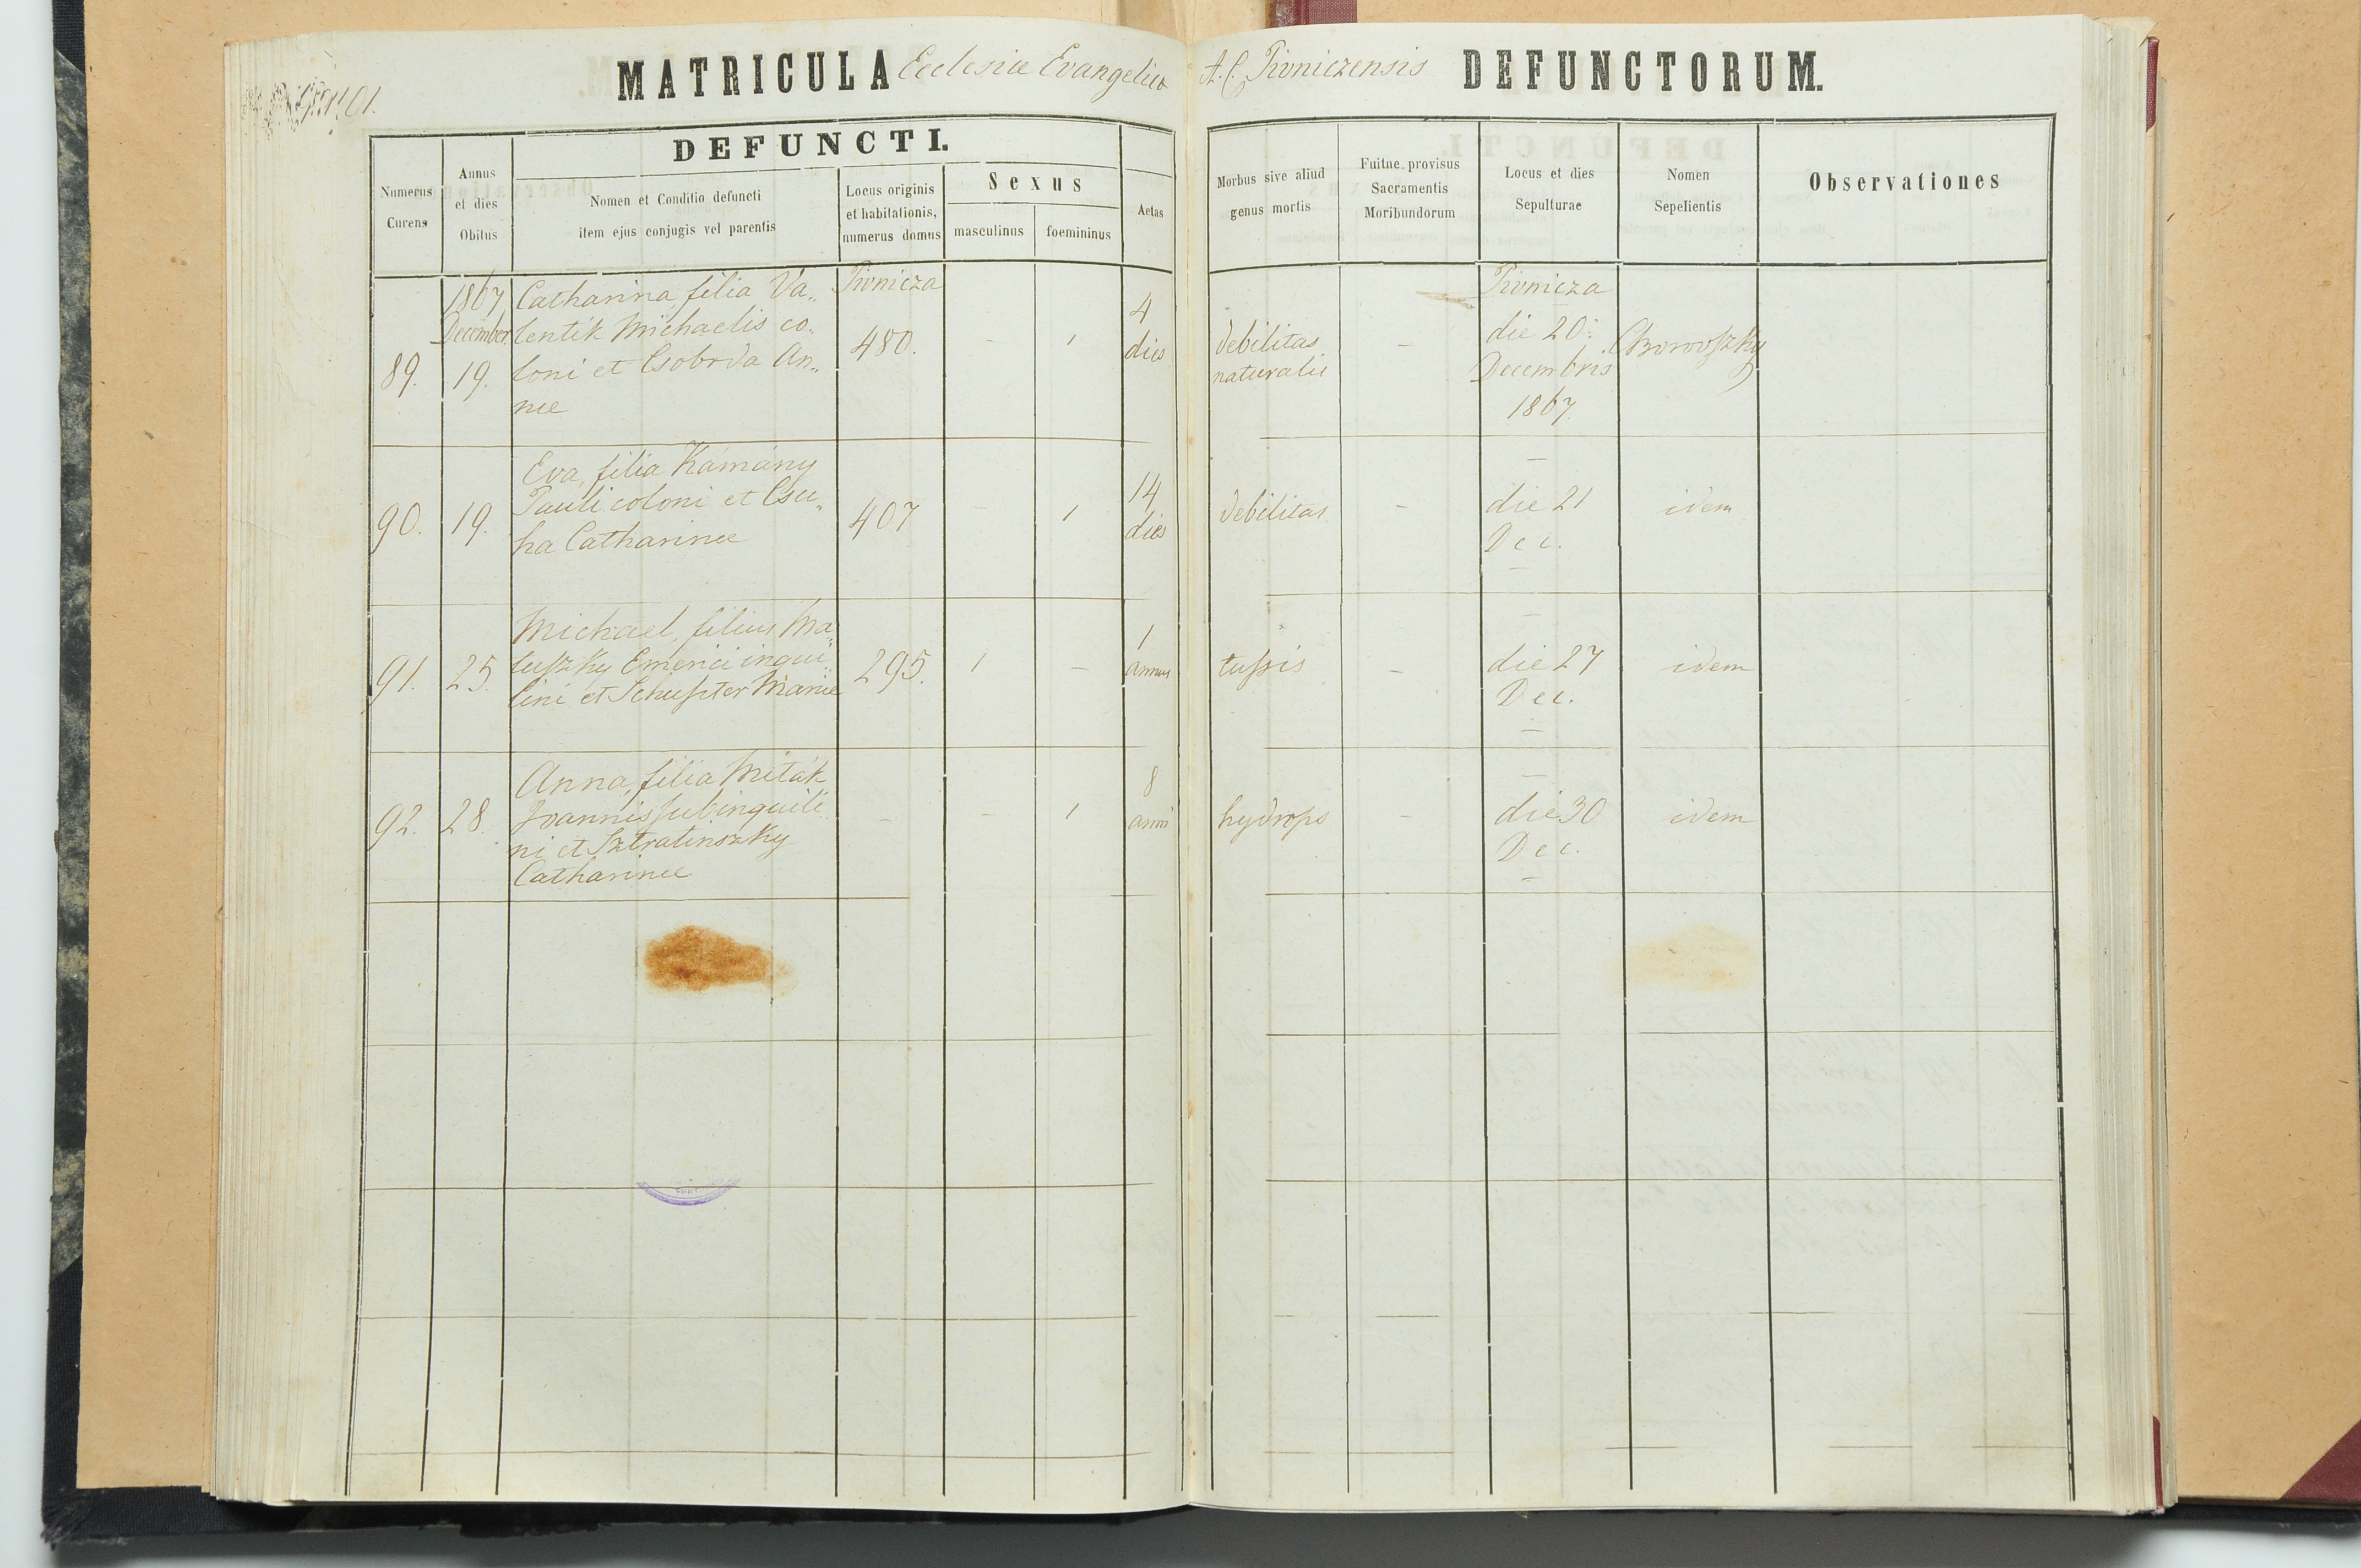 MATRICULA Ecclesiae Evangelicae A. C. Pivniczensis DEFUNCTORUM.
DEFUNCTI.
Numerus
Curens
Annus
et dies
Obitus
Nomen et Conditio defuncti
item ejus conjugis vel parentis
Locus originis
et habitationis,
numerus domus
Sexus
masculinus
foemininus
Aetas
Morbus sive aliud
genus mortis
Fuitne provisus
Sacramentis
Moribundorum
Locus et dies
Sepulturae
Nomen
Sepelientis
Observationes
89.
1867
December
19.
Catharina filia Va„
lentik Michaelis co„
loni et Csobrda An„
nae
Pivnicza
480.
-
1
4
dies
debilitas
naturalis
-
Pivnicza
die 20:
Decembris
1867.
Borovszky
90.
19.
Eva, filia Kámány
Pauli coloni et Csu„
ha Catharinae
407
-
1
14
dies
debilitas
-
die 21
Dec.
idem
91.
25.
Michael, filius Ma„
luszky Emerici inqui„
lini et Schuszter Mariae
295.
1
-
1
annus
tussis
-
die 27
Dec.
idem
92.
28.
Anna, filia Miták
Joannis subinquili„
ni et Sztratinszky
Catharinae
-
-
1
8
anni
hydrops
-
die 30
Dec.
idem